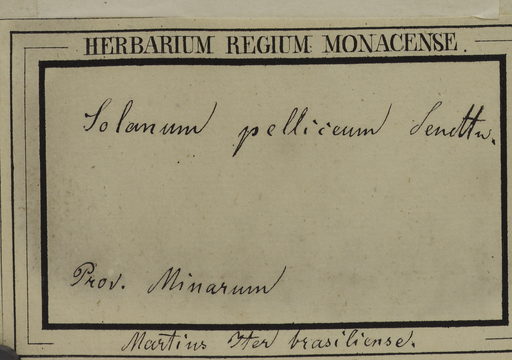 HERBARIUM REGIUM MONACENSE.
Solanum pelliceum Sendtn.
Prov. Minarum
Martius Iter brasiliense.